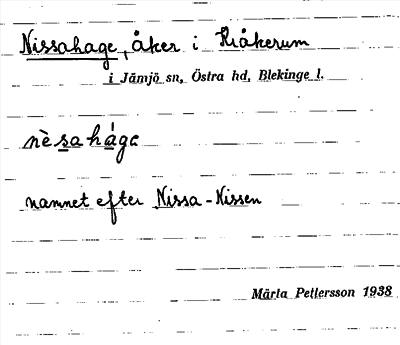 Nissahage, åker i Kråkerum
i Jämjö sn, Östra hd, Blekinge l.
nèsahága
namnet efter Nissa-Nissen
Märta Petersson 1938